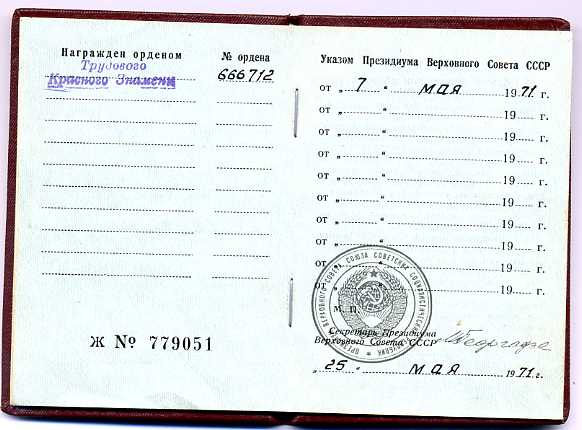 Награжден орденом
№ ордена
Трудового
Красного Знамени
666712
Ж № 779051
Указом Президиума Верховного Совета СССР
от „ 7 “ мая 1971 г.
от „ “ 19 г.
от „ “ 19 г.
от „ “ 19 г.
от „ “ 19 г.
от „ “ 19 г.
от „ “ 19 г.
от „ “ 19 г.
от „ “ 19 г.
от „ “ 19 г.
М. П.
Секретарь Президиума
Верховного Совета СССР
МГеоргадзе
„ 25 “ мая 1971 г.
ПРЕЗИДИУМ ВЕРХОВНОГО СОВЕТА СОЮЗА СОВЕТСКИХ СОЦИАЛИСТИЧЕСКИХ РЕСПУБЛИК